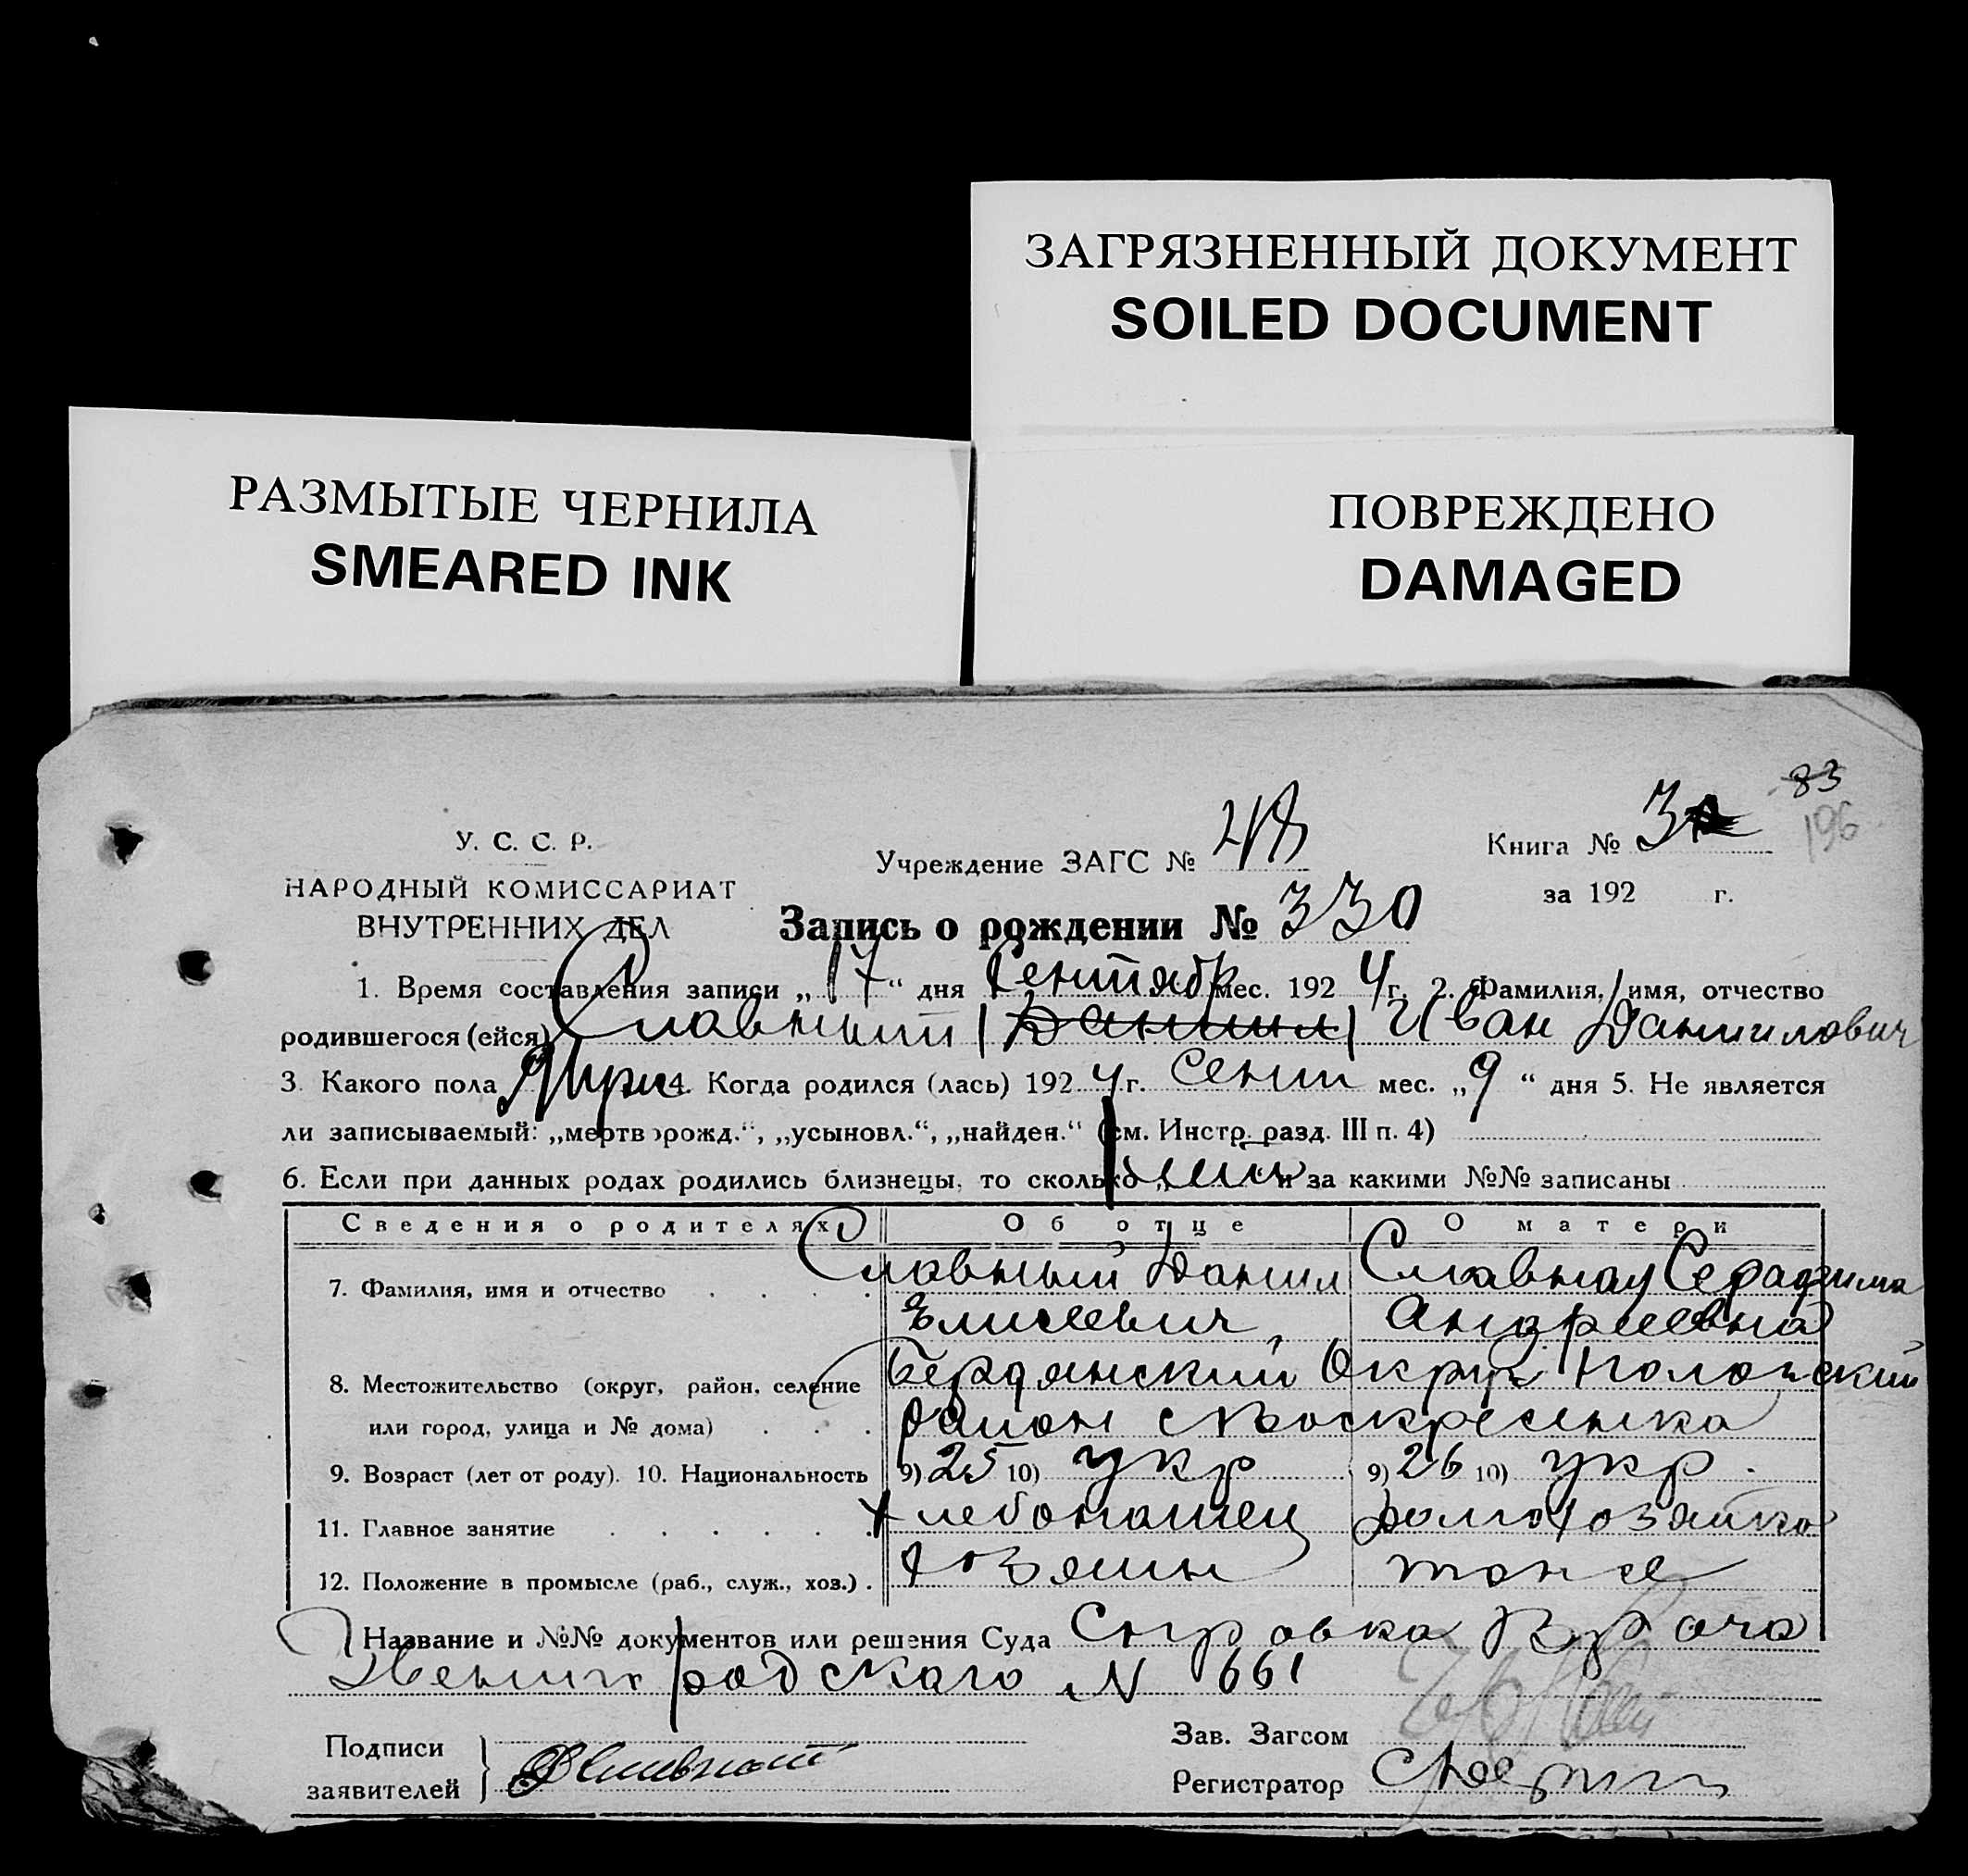 ЗАГРЯЗНЕННЫЙ ДОКУМЕНТ
SOILED DOCUMENT
РАЗМЫТЫЕ ЧЕРНИЛА
SMEARED INK
ПОВРЕЖДЕНО
DAMAGED
83
196
У. С. С. Р.
НАРОДНЫЙ КОМИССАРИАТ
ВНУТРЕННИХ ДЕЛ
Учреждение ЗАГС №
Книга № 3
за 192 г.
Запись о рождении № 330
1. Время составления записи „ 17 “ дня Сентябр мес. 192 4 г. 2. Фамилия, имя, отчество
родившегося (ейся) Славный (Даниил) Иван Даниилович
3. Какого пола Муж 4. Когда родился (лась) 192 4 г. Сент мес. „ 9 “ дня 5. Не является
ли записываемый: „мертворожд.“, „усыновл.“, „найден.“ (см. Инстр. разд. III п. 4)
6. Если при данных родах родились близнецы, то сколько и за какими №№ записаны
Сведения о родителях Об отце О матери
7. Фамилия, имя и отчество Славный Данил Славная Серафима
Елисеевич Андреевна
8. Местожительство (округ, район, селение Бердянский Округ Пологский
или город, улица и № дома) район с Воскресенка
9. Возраст (лет от роду). 10. Национальность 9) 25 10) укр 9) 26 10) укр.
11. Главное занятие хлебопашец домохозяйка
12. Положение в промысле (раб., служ., хоз.) хозяин тоже
Название и №№ документов или решения Суда Справка Врача
Звенигородского N 661
Подписи заявителей
Зав. Загсом
Регистратор